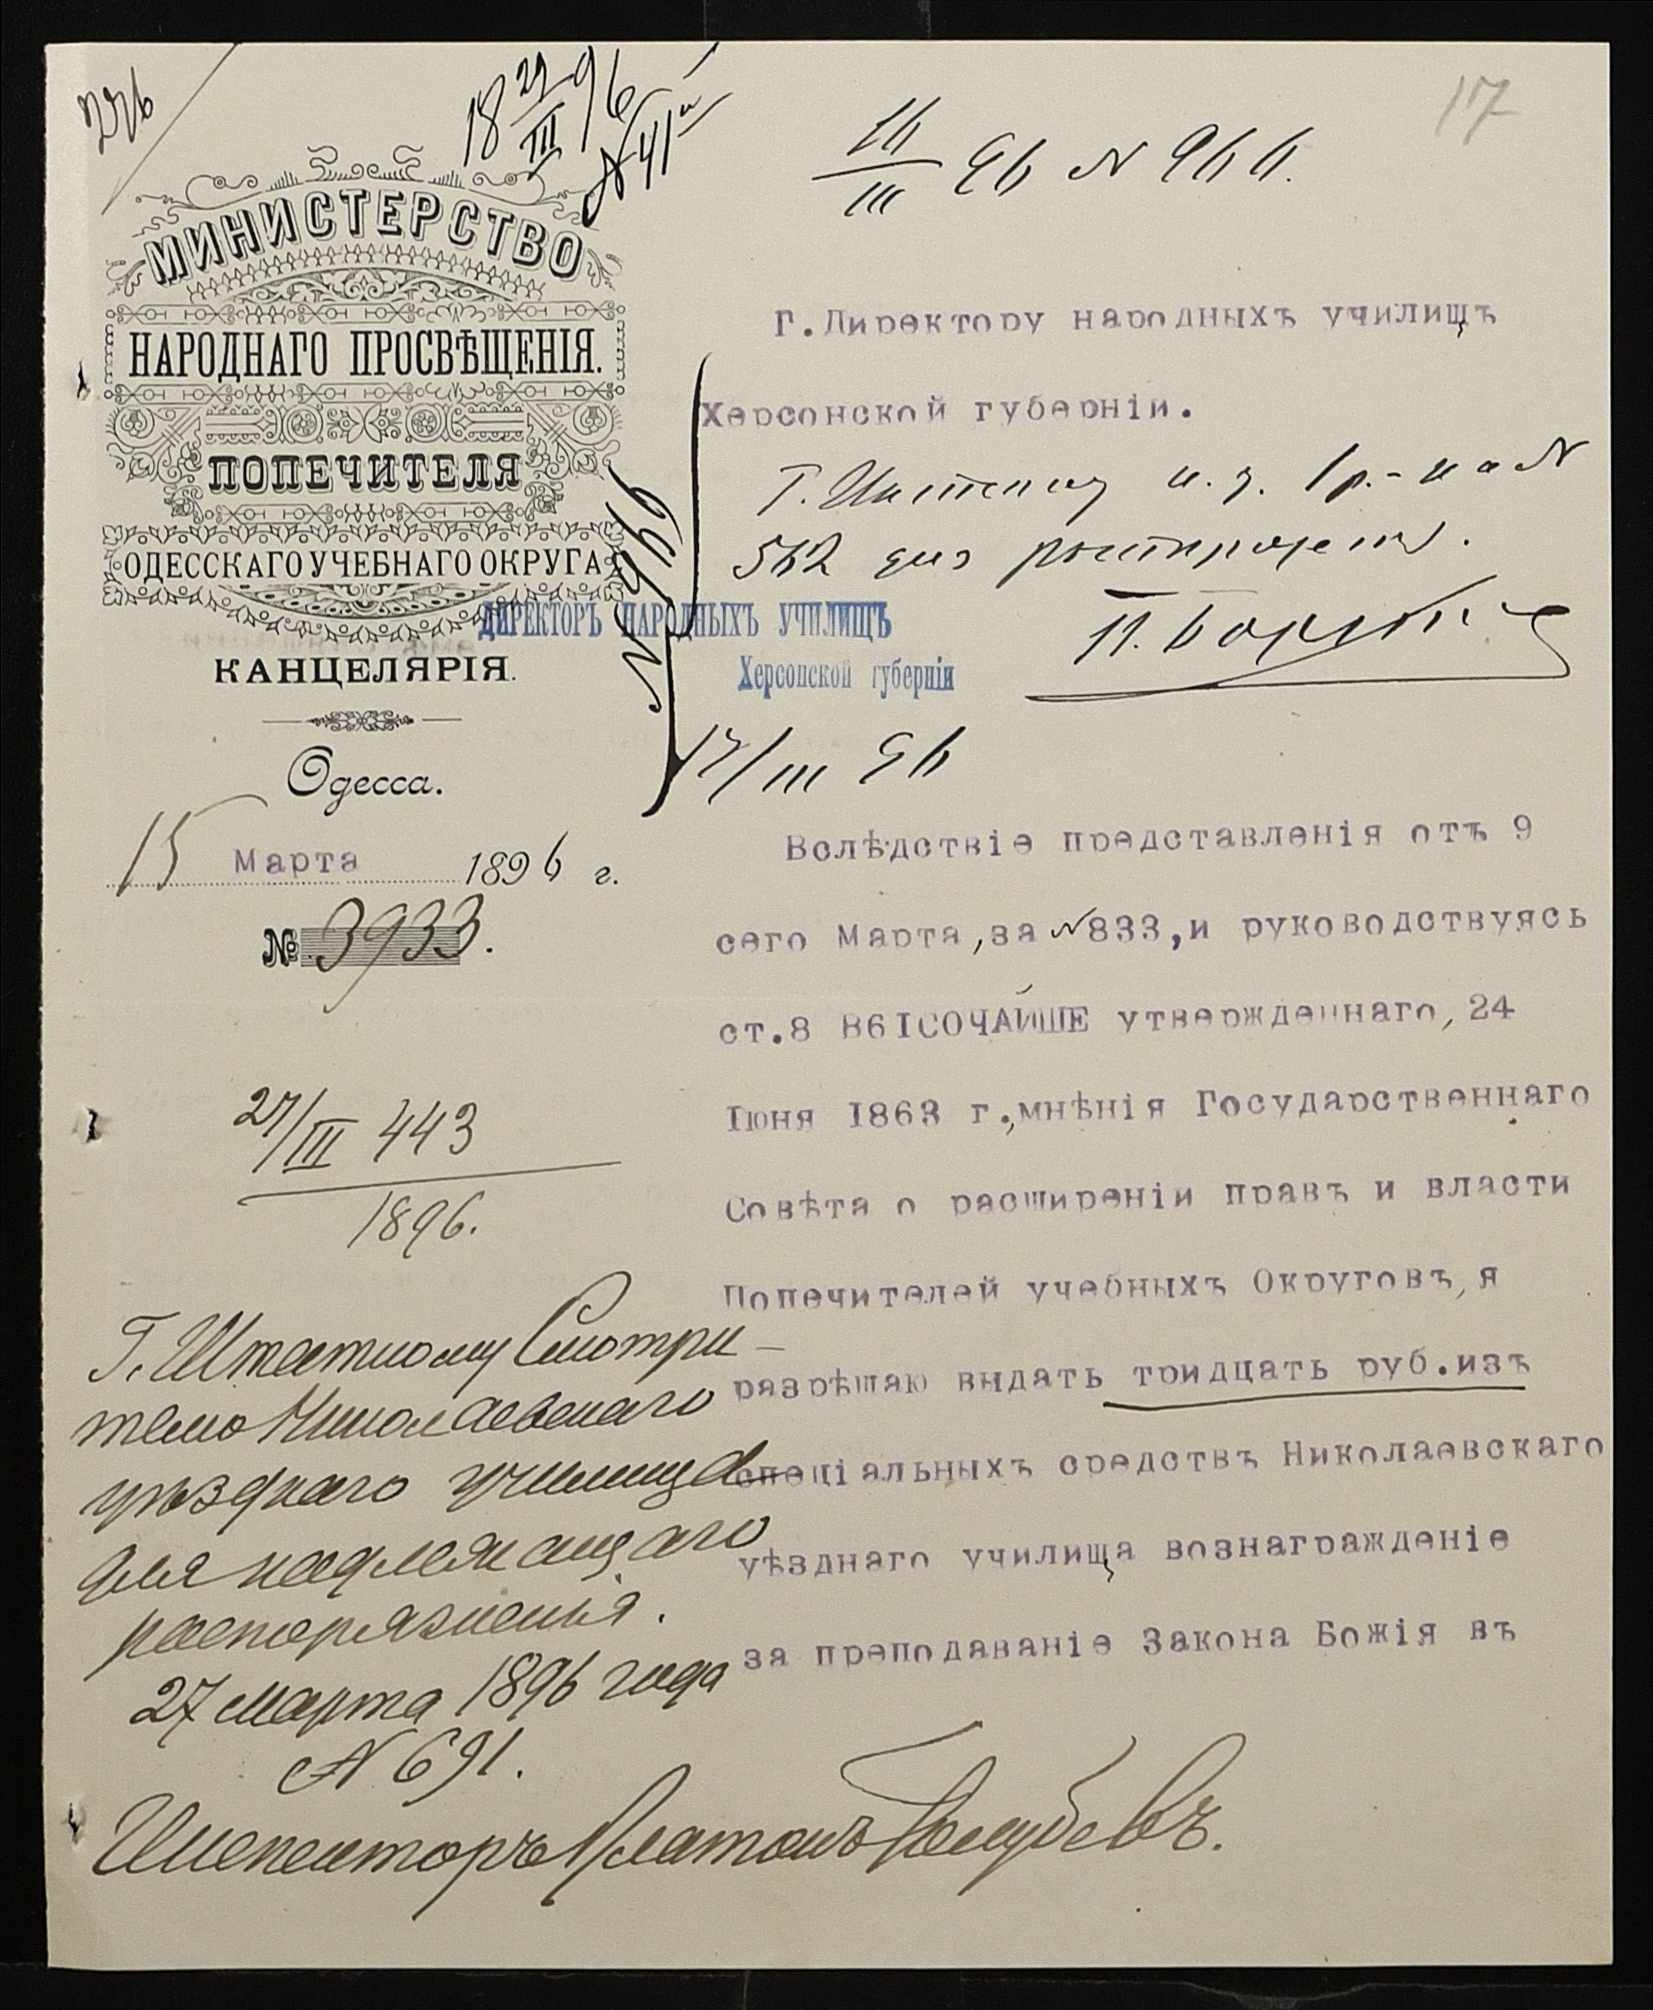 17
18 29/III 96
№ 41
16/III 96 № 966.
МИНИСТЕРСТВО
НАРОДНАГО ПРОСВѢЩЕНІЯ.
ПОПЕЧИТЕЛЯ
ОДЕССКАГО УЧЕБНАГО ОКРУГА
КАНЦЕЛЯРІЯ.
Одесса.
15 Марта 1896 г.
№ 3933.
27/III 443
1896.
Г. Штатному Смотри-
телю Николаевскаго
уѣзднаго училища
для надлежащаго
распоряженія.
27 Марта 1896 года
№ 691.
Инспекторъ Платонъ Голубевъ.
Г.Директору народныхъ училищъ
Херсонской губерніи.
562 для
№ 966
ДИРЕКТОРЪ НАРОДНЫХЪ УЧИЛИЩЪ
Херсонской губерніи
17/III 96
Вслѣдствіе представленія отъ 9
сего Марта, за №833, и руководствуясь
ст.8 ВЫСОЧАЙШЕ утвержденнаго, 24
Іюня 1863 г., мнѣнія Государственнаго
Совѣта о расширеніи правъ и власти
Попечителей учебныхъ Округовъ, я
разрѣшаю выдать тридцать руб.изъ
спеціальныхъ средствъ Николаевскаго
уѣзднаго училища вознагражденіе
за преподаваніе Закона Божія въ